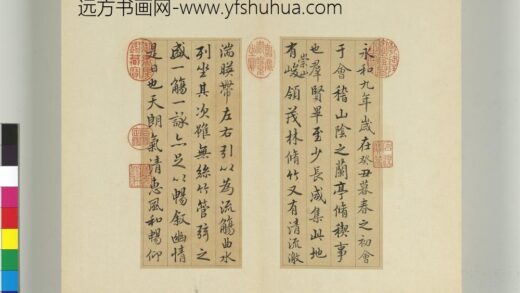 远方书画网-www.yfshuhua.com
永和九年歲在癸丑暮春之初會
于會稽山陰之蘭亭脩稧事
也羣賢畢至少長咸集此地
有崇山峻領茂林脩竹又有清流激
湍暎帶左右引以為流觴曲水
列坐其次雖無絲竹管弦之
盛一觴一詠亦足以暢叙幽情
是日也天朗氣清惠風和暢仰